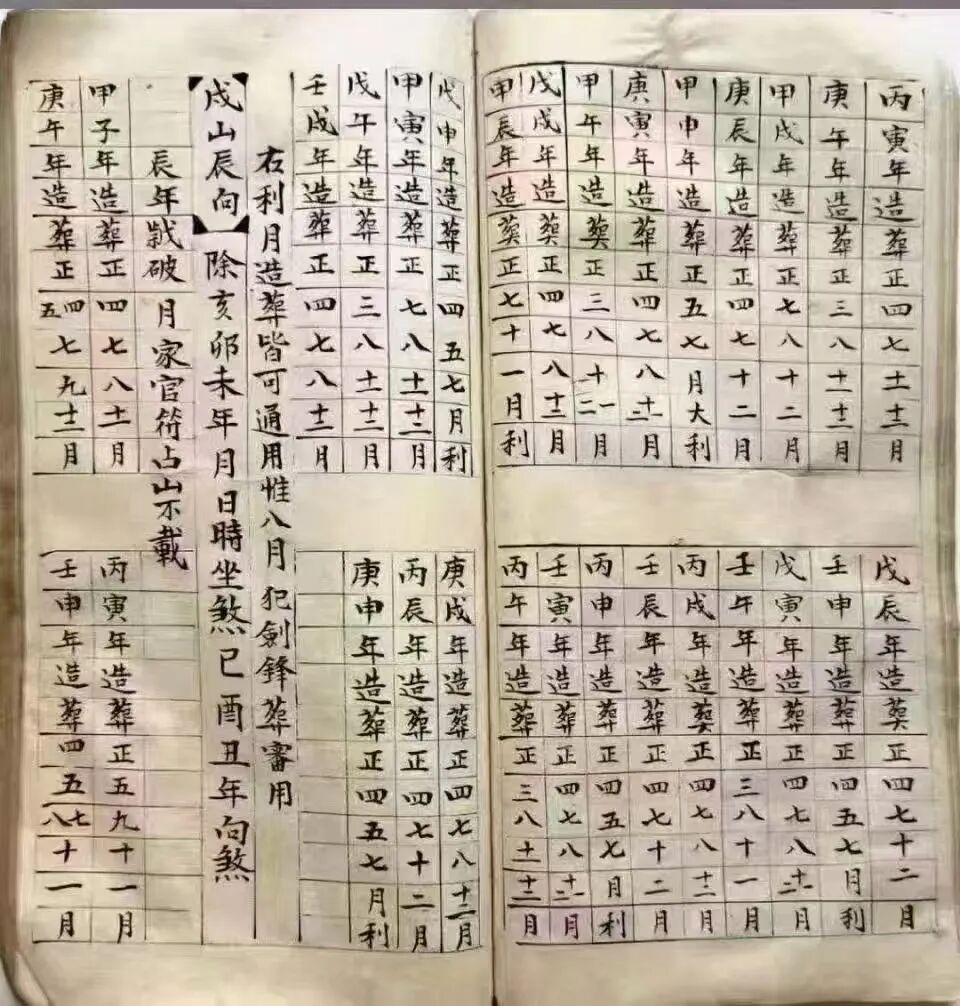 丙寅年造葬正四七十一十二月
庚午年造葬正三八十一十二月
甲戌年造葬正七八十二月
庚辰年造葬正四七十二月
甲申年造葬正五七月大利
庚寅年造葬正四七八十一二月
甲午年造葬正三八十一二月
戊戌年造葬正四七八十一二月
甲辰年造葬正七十一月利
戊辰年造葬正四七十二月
壬申年造葬正四五七月利
戊寅年造葬正四七八十一二月
壬午年造葬正三八十一月
丙戌年造葬正四七八十一二月
壬辰年造葬正四七十二月
丙申年造葬正四五七月利
壬寅年造葬正四七八十一二月
丙午年造葬正三八十一十二月
戊申年造葬正四五七月利
甲寅年造葬正七八十一十二月
戊午年造葬正三八十一十二月
壬戌年造葬正四七八十一二月
庚戌年造葬正四七八十一二月
丙辰年造葬正四七十二月
庚申年造葬正四五七月利
右利月造葬皆可通用惟八月犯劍鋒葬審用
戌山辰向 除亥卯未年月日時坐煞巳酉丑年向煞
辰年歲破月家官符占山不載
甲子年造葬正四七八十一月
庚午年造葬正四五七九十一二月
丙寅年造葬正五九十一月
壬申年造葬四五七八十一月